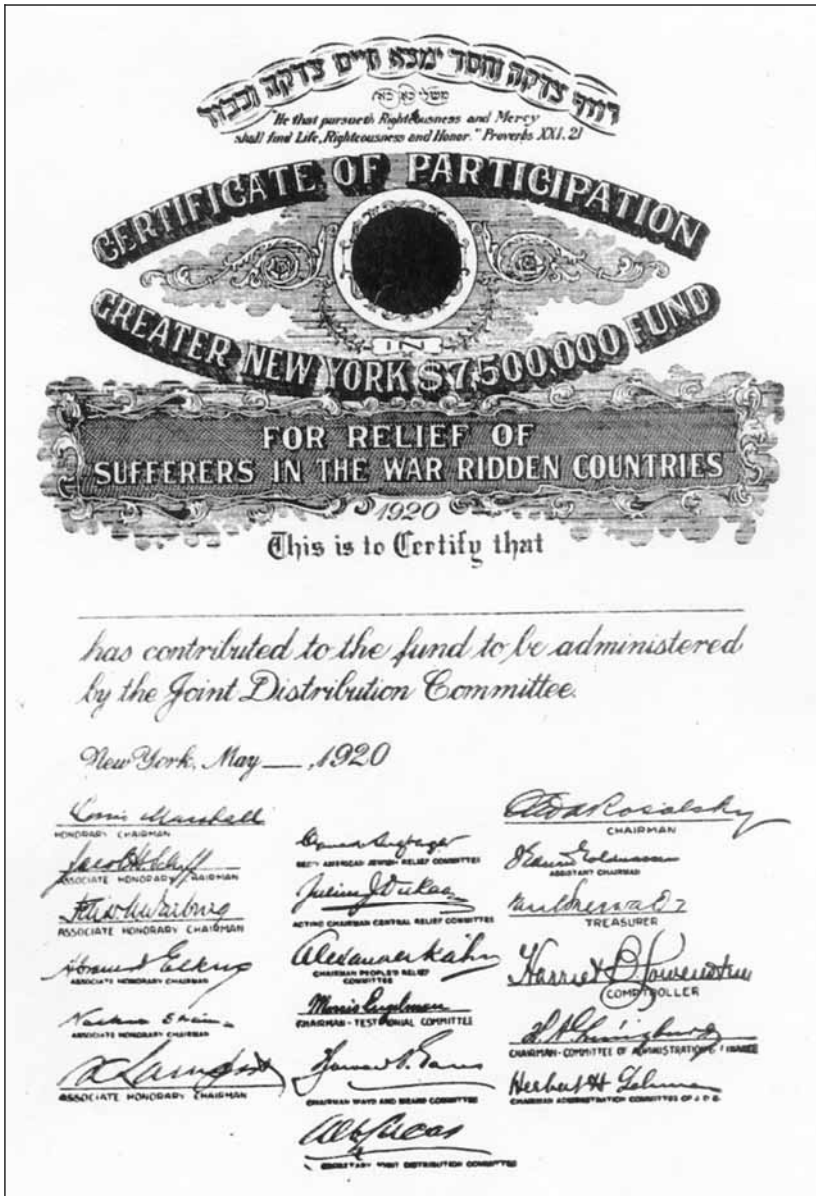 רודף צדקה וחסד ימצא חיים צדקה וכבוד
משלי כא כא
"He that pursueth Righteousness and Mercy
shall find Life, Righteousness and Honor." Proverbs XXI. 21
CERTIFICATE OF PARTICIPATION
IN
GREATER NEW YORK $7,500,000 FUND
FOR RELIEF OF
SUFFERERS IN THE WAR RIDDEN COUNTRIES
1920
This is to Certify that
has contributed to the fund to be administered
by the Joint Distribution Committee.
New York, May ___, 1920
Louis Marshall
HONORARY CHAIRMAN
Jacob H. Schiff
ASSOCIATE HONORARY CHAIRMAN
Felix M. Warburg
ASSOCIATE HONORARY CHAIRMAN
Elkus
ASSOCIATE HONORARY CHAIRMAN
Nathan Straus
ASSOCIATE HONORARY CHAIRMAN
ASSOCIATE HONORARY CHAIRMAN
SECY AMERICAN JEWISH RELIEF COMMITTEE
Julius J. Dukas
ACTING CHAIRMAN CENTRAL RELIEF COMMITTEE
Alexander Kahn
CHAIRMAN PEOPLE'S RELIEF
COMMITTEE
Morris Engelman
CHAIRMAN - TESTIMONIAL COMMITTEE
CHAIRMAN WAYS AND MEANS COMMITTEE
Alb Lucas
SECRETARY JOINT DISTRIBUTION COMMITTEE
Otto A Rosalsky
CHAIRMAN
ASSISTANT CHAIRMAN
TREASURER
Harriet B. Lowenstein
COMPTROLLER
CHAIRMAN - COMMITTEE OF ADMINISTRATION & FINANCE
Herbert H Lehman
CHAIRMAN ADMINISTRATION COMMITTEE OF J D C